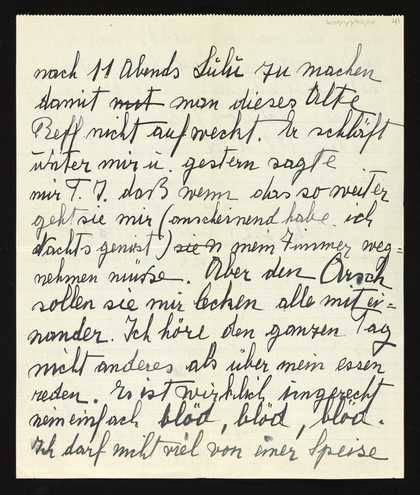 nach 11 Abends Lulu zu machen
damit mit man dieses Alte
Reff nicht aufweckt. Er schläft
unter mir u. gestern sagte
mir T. J. daß wenn das so weiter
geht sie mir (anscheinend habe ich
Nachts geniest) sie n mein Zimmer weg=
nehmen müsse. Aber den Arsch
sollen sie mir lecken alle mitei=
nander. Ich höre den ganzen Tag
nicht anderes als über mein essen
reden. Es ist wirklich ungerecht
nein einfach blöd, blöd, blöd.
Ich darf nicht viel von einer Speise